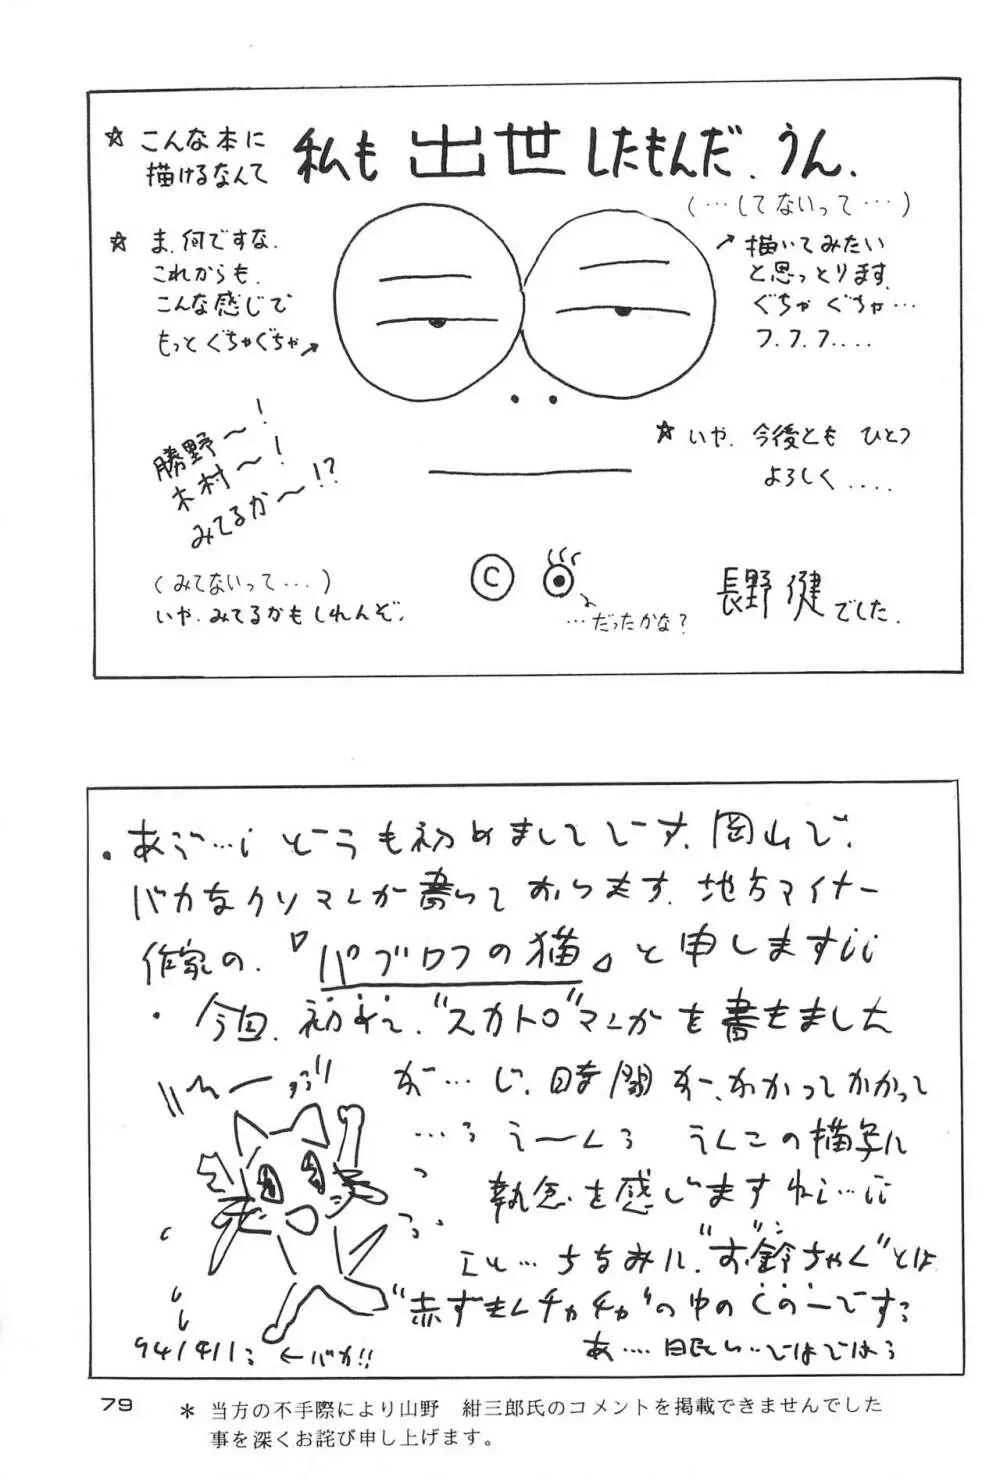 ☆ こんな本に
描けるなんて
私も 出世 したもんだ. うん.
(…してないって…)
☆ ま. 何ですな.
これからも.
こんな感じで
もっと ぐちゃぐちゃ↗
↗描いてみたい
と思っとります.
ぐちゃ ぐちゃ…
フ.フ.フ....
勝野〜!
木村〜!
みてるか〜!?
☆ いや. 今後とも ひとつ
よろしく ....
(みてないって...)
いや. みてるかもしれんぞ.
©
…だったかな?
長野 健 でした.
・あぅ…¡ どうも初めましてです. 岡山で.
バカなクソマンガ書いており​ます. 地方マイナー
作家の.『パブロフの猫』と申します¡¡
・今回. 初めて.“スカトロ”マンガを書きました
が…し. 時間が–. かかってかかって
…。 うーん。 うんこの描写に
執念を感じますね¡…¡¡
えと…ちなみに.“お鈴ちゃん”とは
“赤ずきんチャチャ”の中の
です。
941411:
←バカ!!
あ.... 眠い…ではでは。
79
＊ 当方の不手際により山野　紺三郎氏のコメントを掲載できませんでした
事を深くお詫び申し上げます。